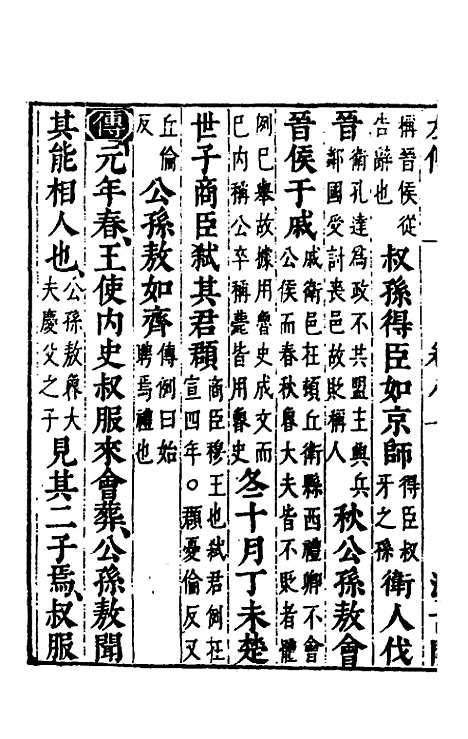 稱晉侯從告辭也 叔孫得臣如京師 得臣叔牙之孫 衛人伐
晉 衛孔達爲政不共盟主興兵鄰國受討喪邑故貶稱人 秋公孫敖會
晉侯于戚 戚衛邑在頓丘衛縣西禮卿不會公侯而春秋魯大夫皆不貶者體
例已舉故據用魯史成文而已内稱公卒稱薨皆用魯史 冬十月丁未楚
世子商臣弑其君頵 商臣穆王也弑君例在宣四年○頵憂倫反又
丘倫反 公孫敖如齊 傳例曰始聘焉禮也
傳 元年春、王使内史叔服來會葬、公孫敖聞
其能相人也、 公孫敖魯大夫慶父之子 見其二子焉、叔服